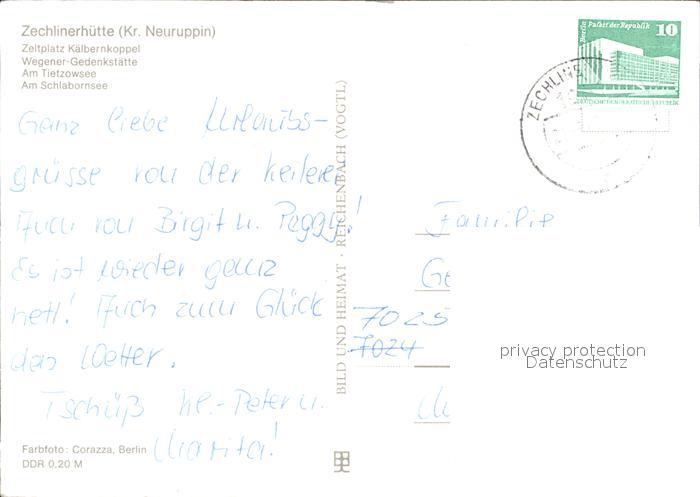 Zechlinerhütte (Kr. Neuruppin)
Zeltplatz Kälbernkoppel
Wegener-Gedenkstätte
Am Tietzowsee
Am Schlabornsee
Ganz liebe Urlaubs-
grüsse von der
Auch von Birgit u. Peggy!
Es ist wieder ganz
nett! Auch zum Glück
das Wetter.
Tschüß Kl.-Peter u.
Marita!
Farbfoto: Corazza, Berlin
DDR 0,20 M
BILD UND HEIMAT · REICHENBACH (VOGTL)
Berlin Palast der Republik 10
DEUTSCHE DEMOKRATISCHE REPUBLIK
ZECHLINER
Familie
Ge
7025
7024
privacy protection
Datenschutz